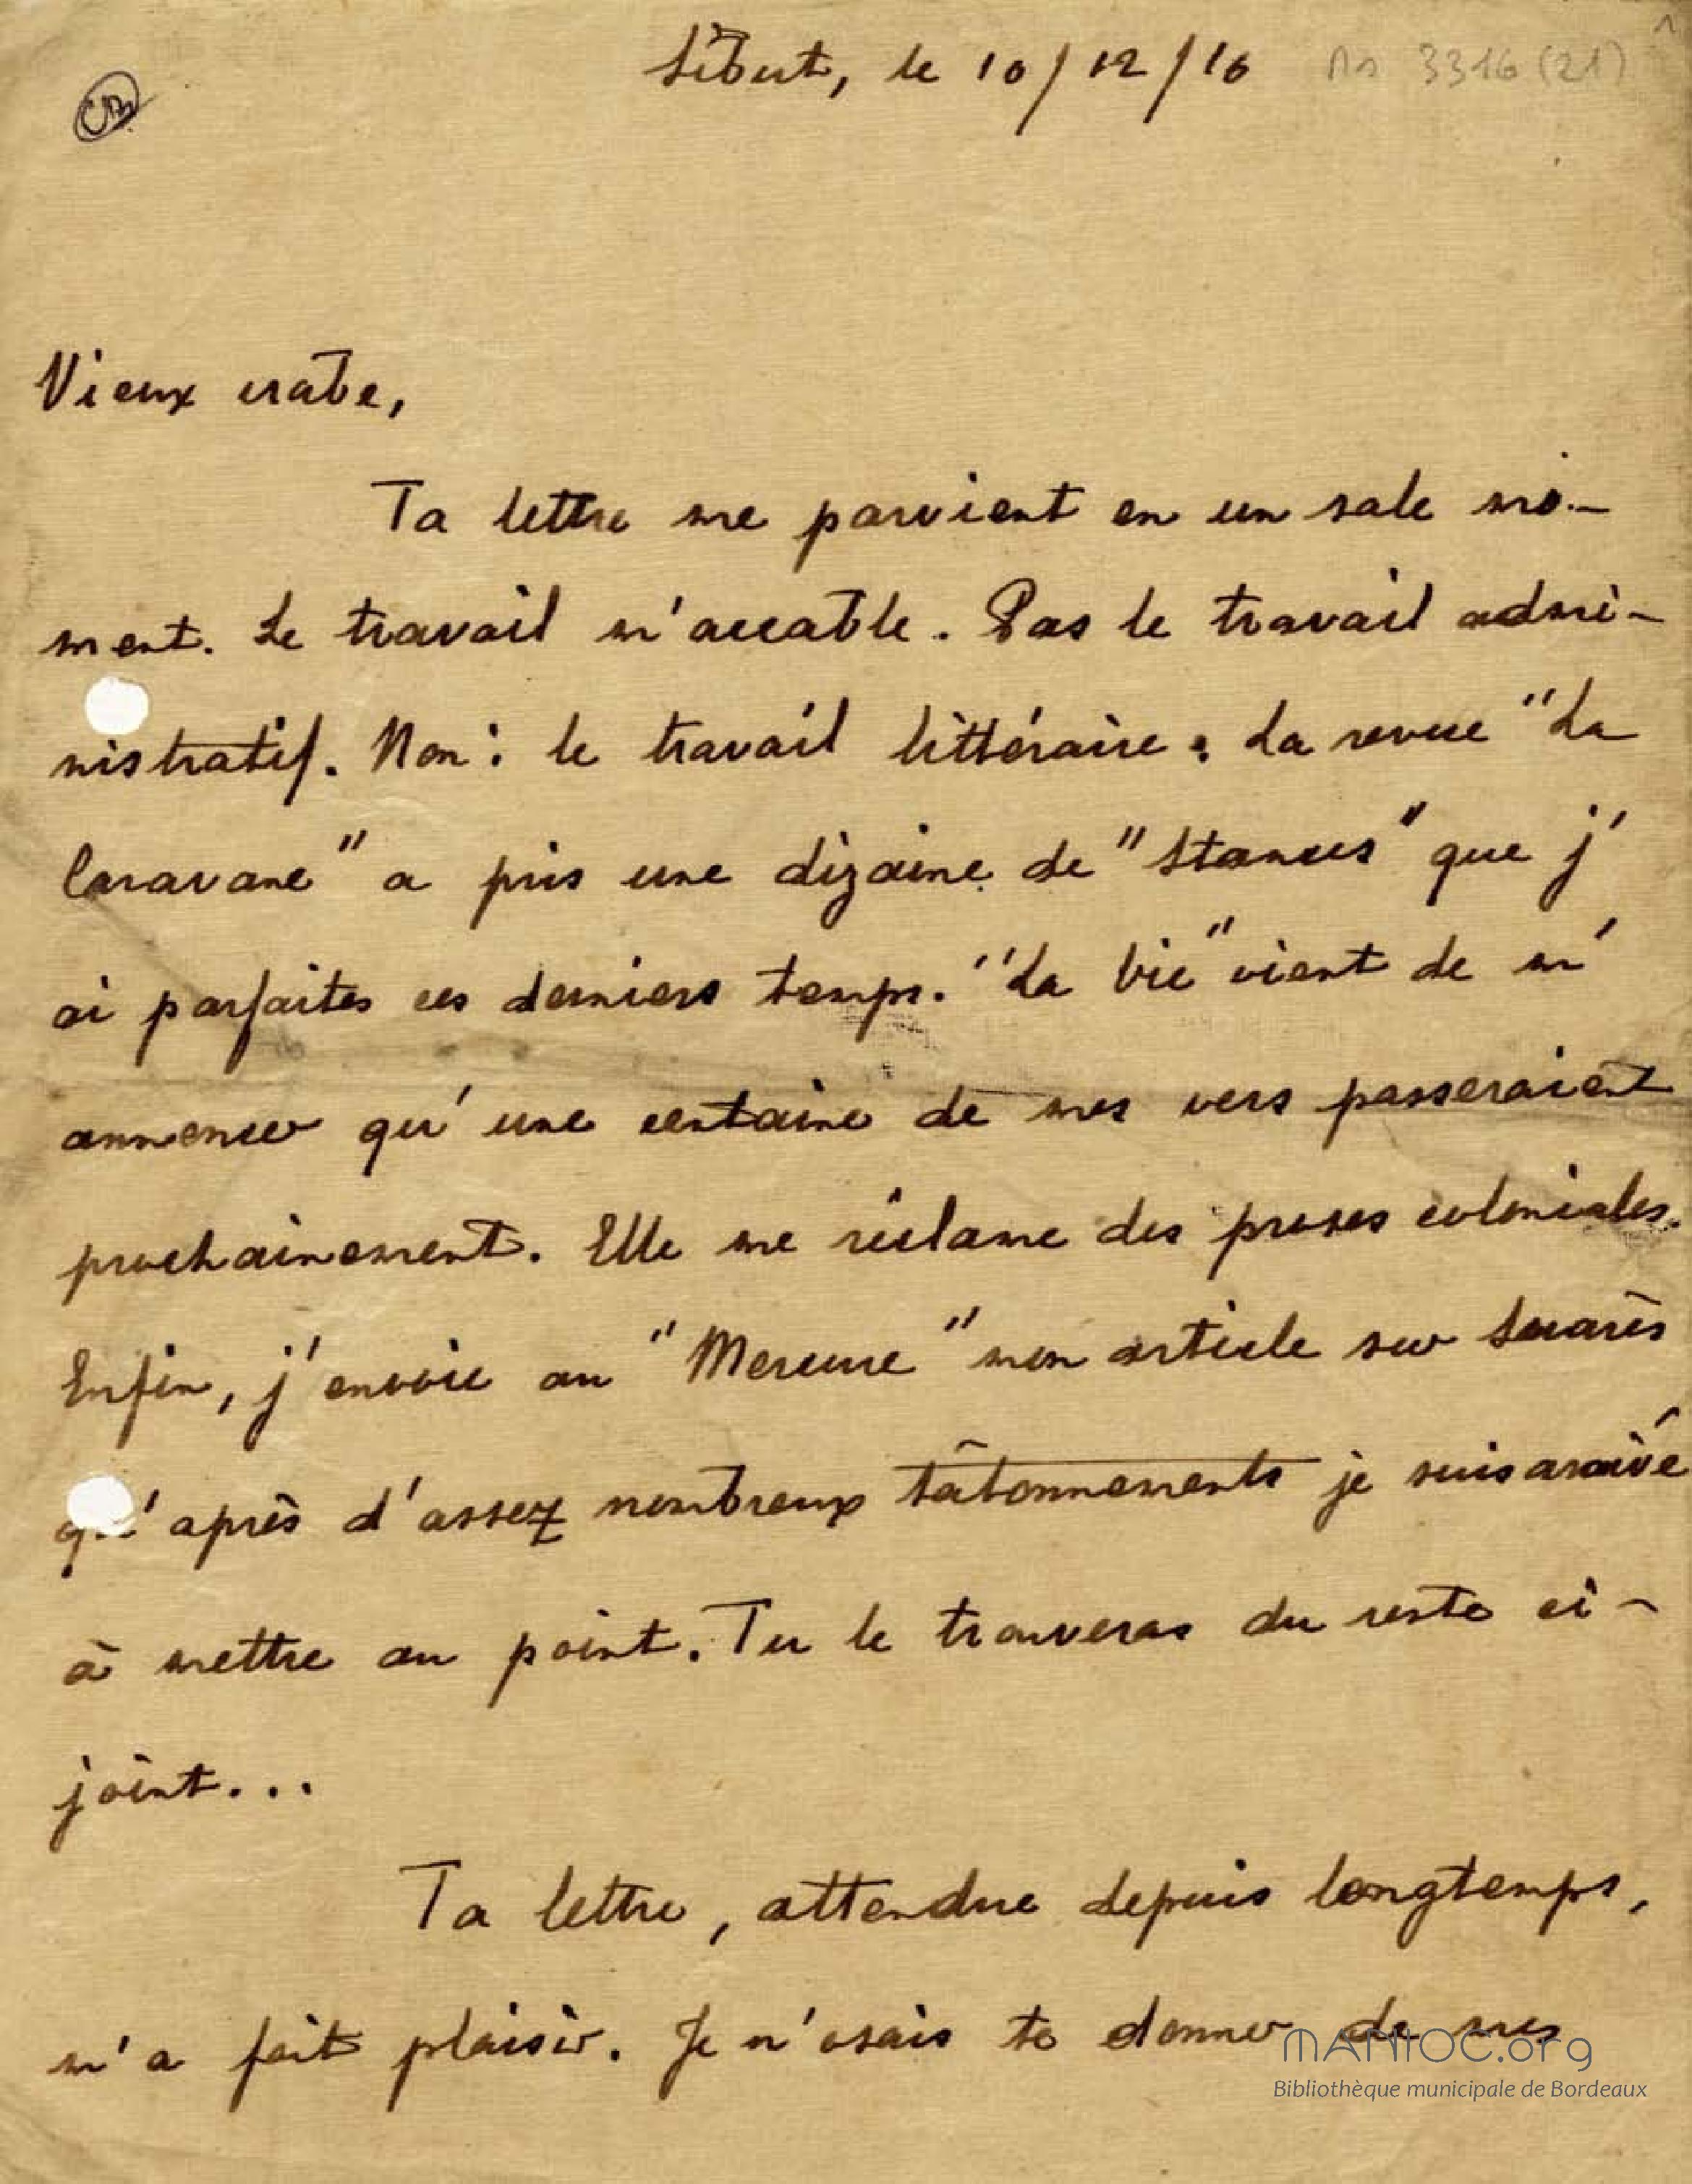 Sibut, le 10/12/16
Ms 3316 (21)
1
CB
Vieux crabe,
Ta lettre me parvient en un sale mo-
ment. Le travail m'accable. Pas le travail admi-
nistratif. Non : le travail littéraire. La revue "La
Caravane" a pris une dizaine de "Stances" que j'
ai parfaites ces derniers temps. "La Vie" vient de m'
annoncer qu'une centaine de mes vers passeraient
prochainement. Elle me réclame des proses coloniales.
Enfin, j'envoie au "Mercure" mon article sur Suarès
qu'après d'assez nombreux tâtonnements je suis arrivé
à mettre au point. Tu le trouveras du reste ci-
joint...
Ta lettre, attendue depuis longtemps,
m'a fait plaisir. Je n'osais te donner de mes
MANIOC.org
Bibliothèque municipale de Bordeaux